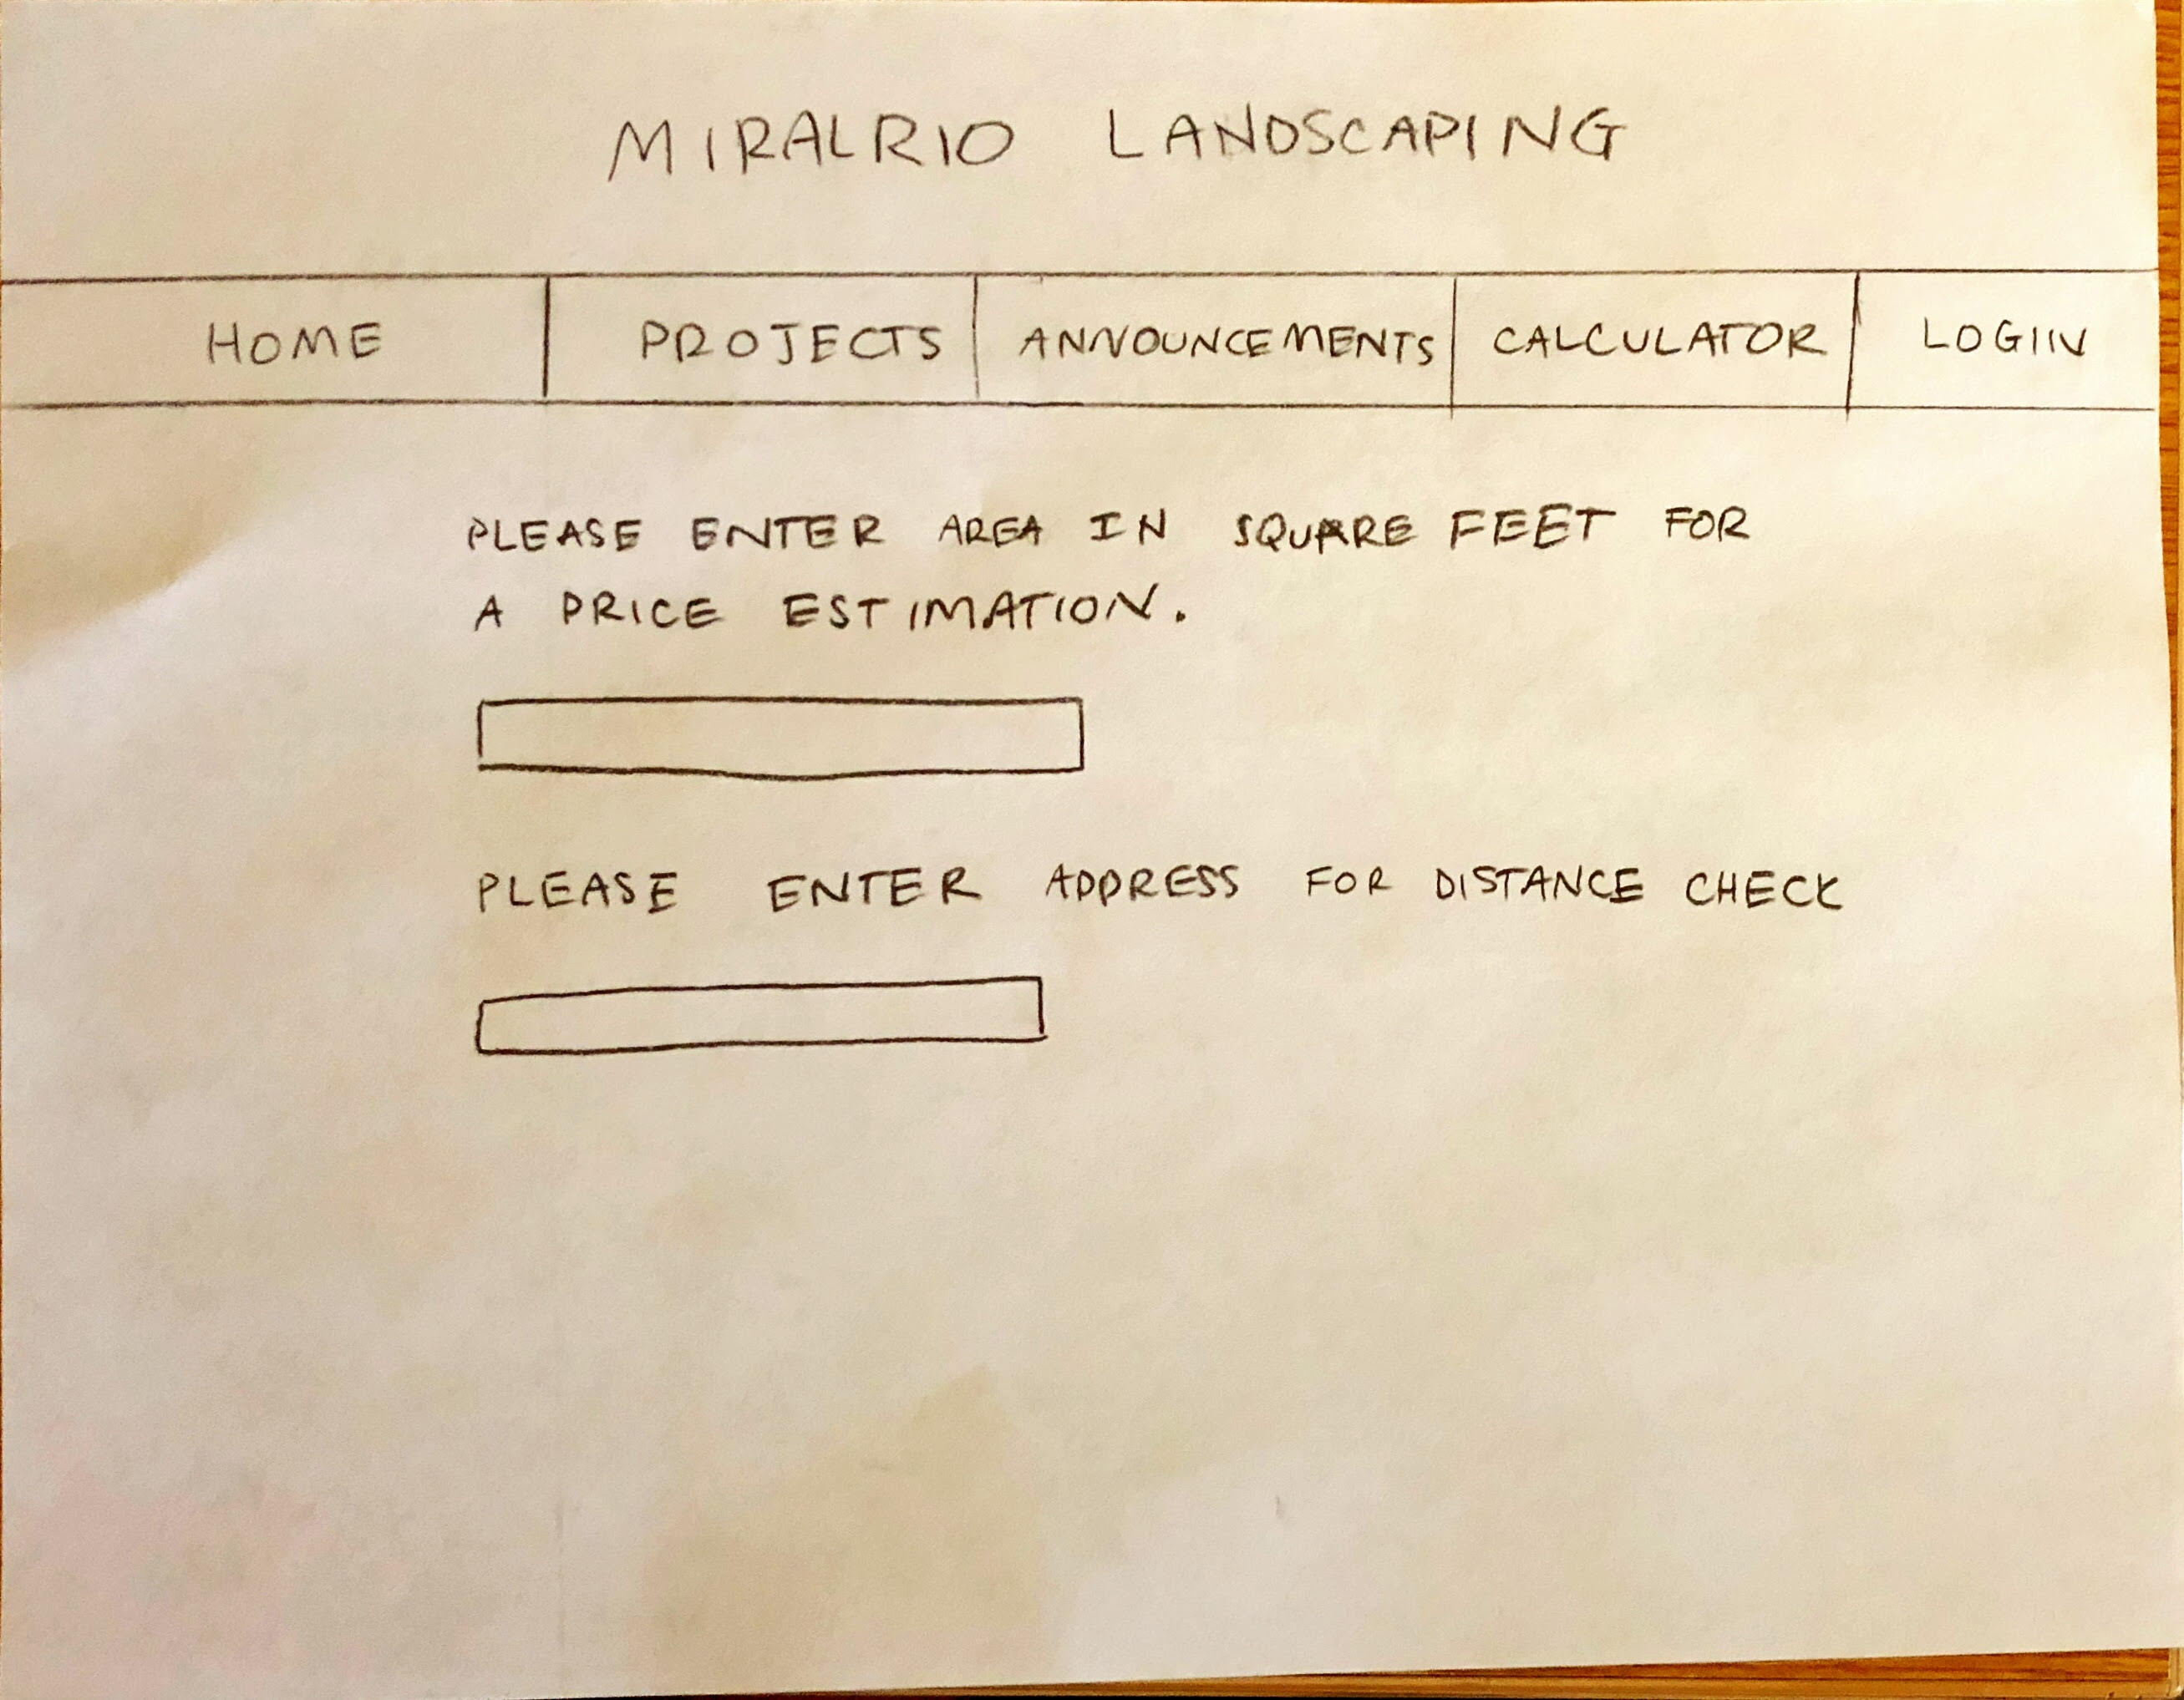 MIRALRIO LANDSCAPING
HOME PROJECTS ANNOUNCEMENTS CALCULATOR LOGIN
PLEASE ENTER AREA IN SQUARE FEET FOR
A PRICE ESTIMATION.
PLEASE ENTER ADDRESS FOR DISTANCE CHECK